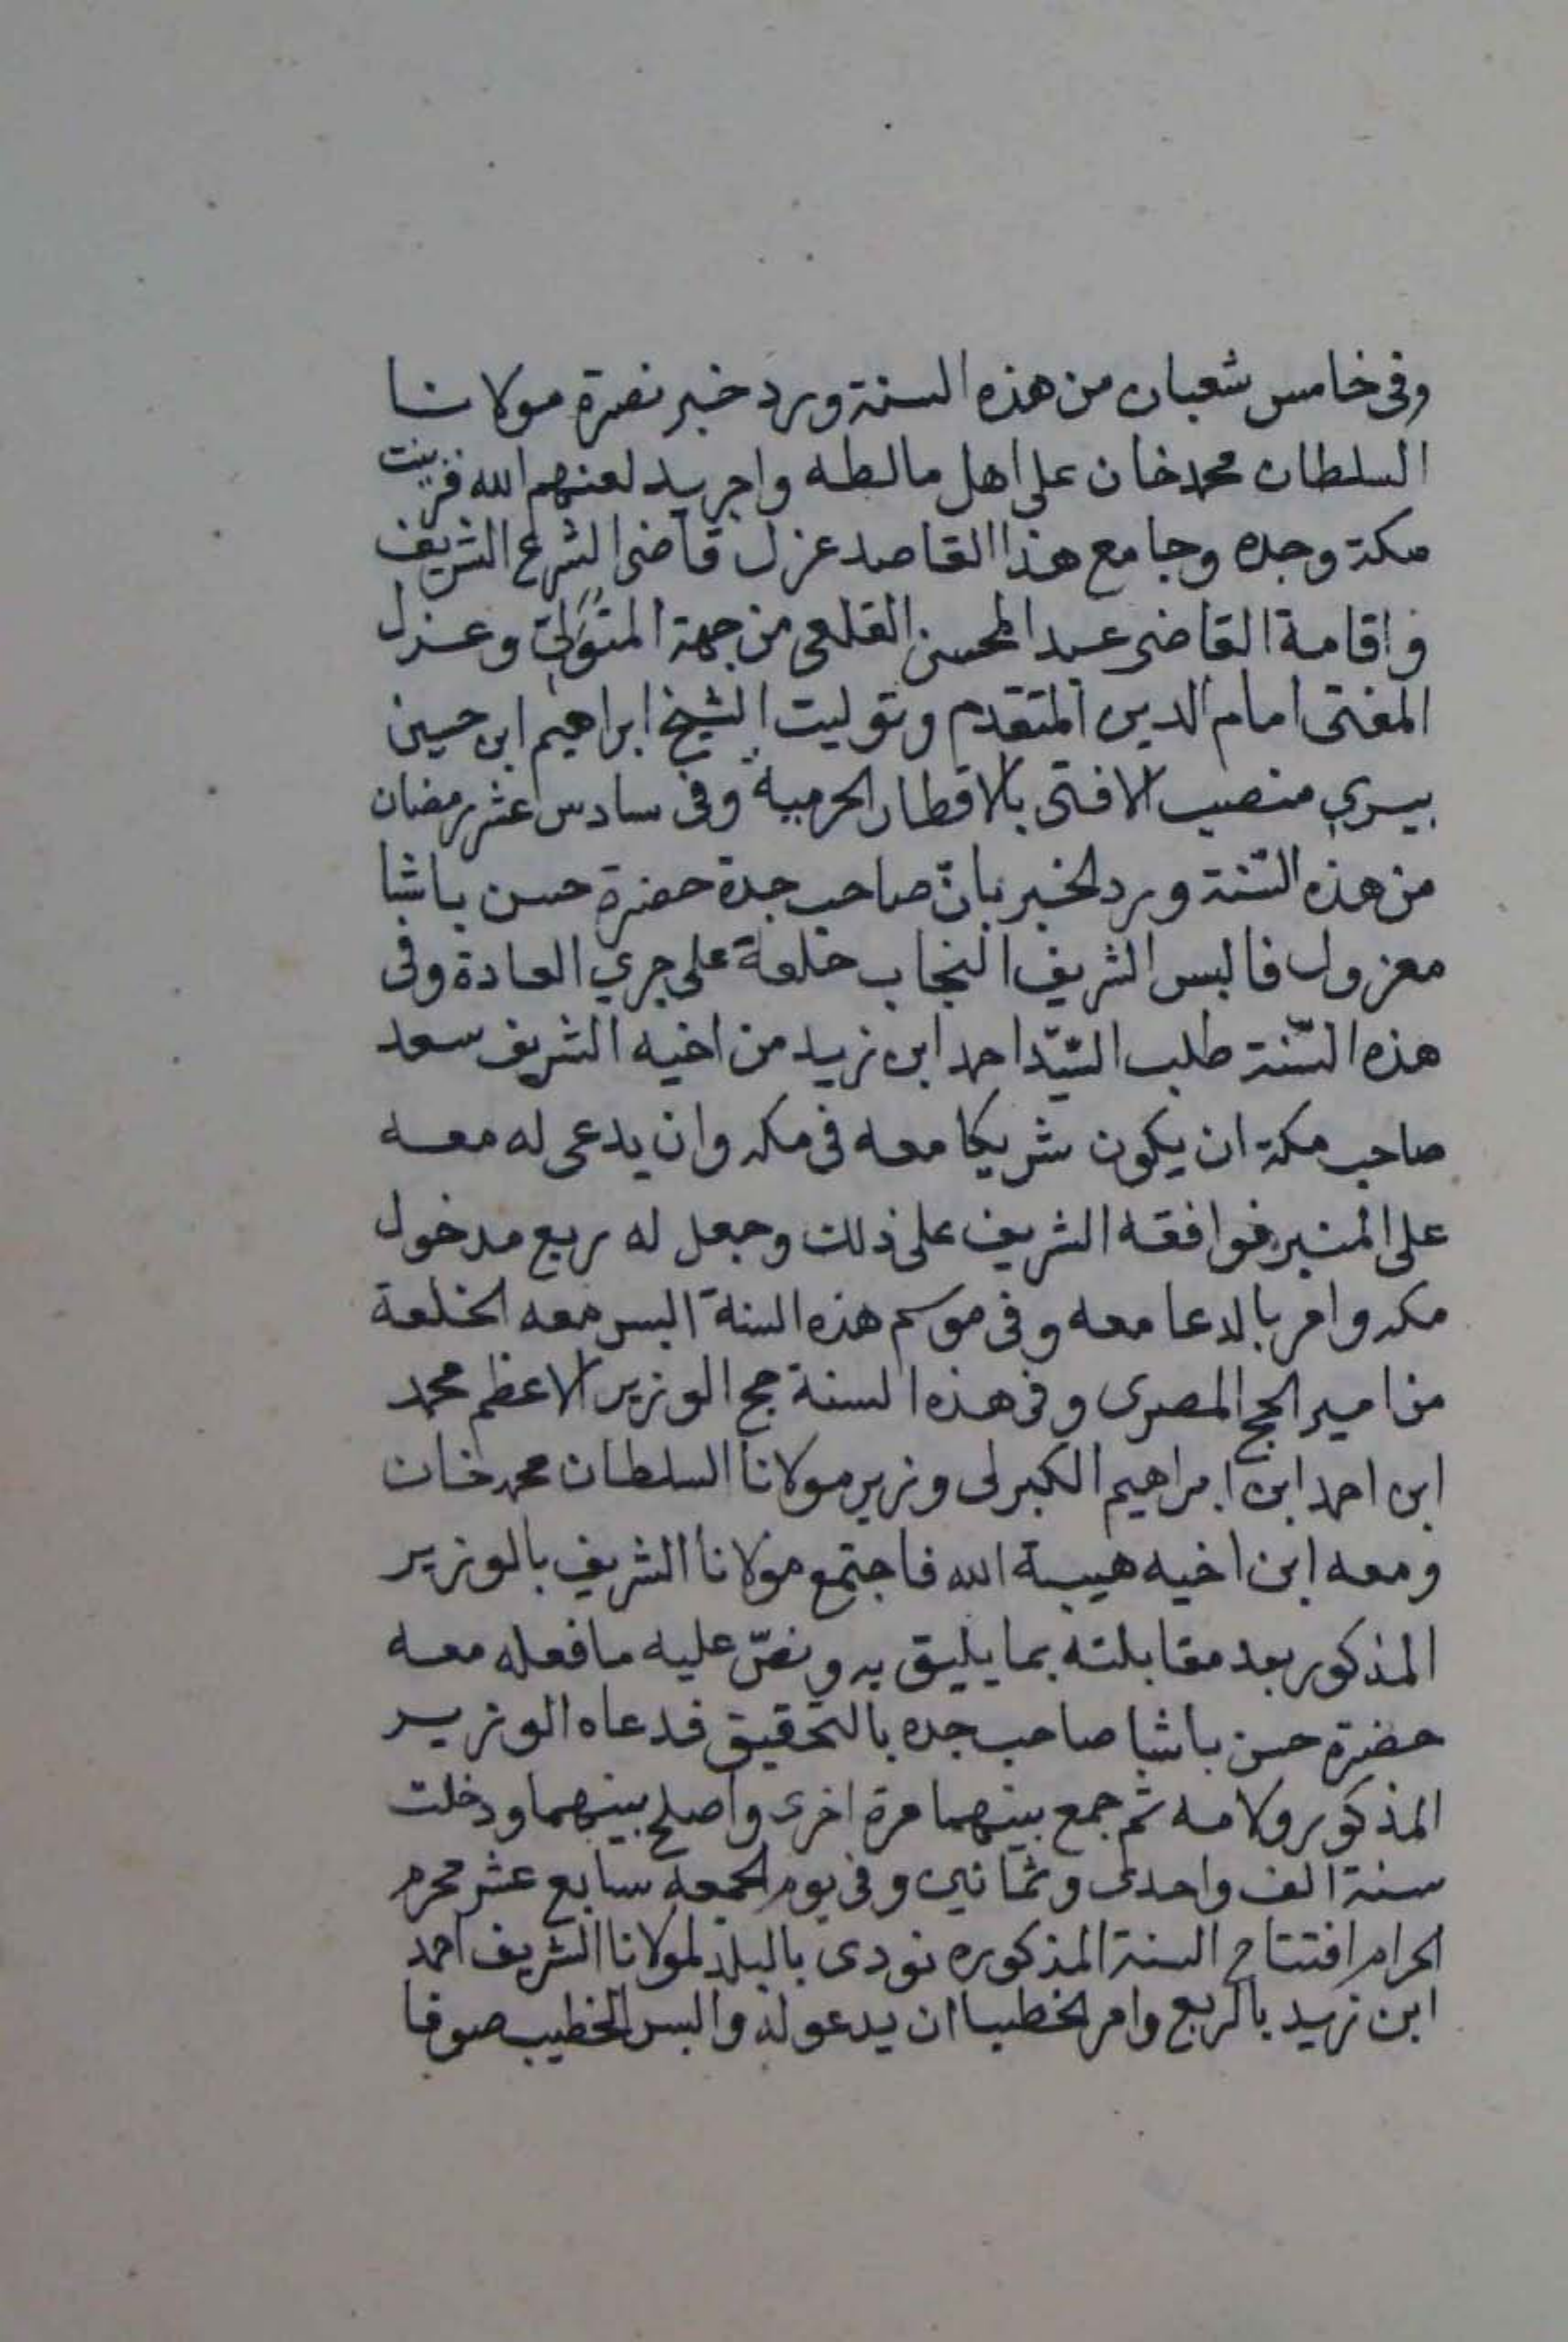 وفى خامس شعبان من هذه السنة ورد خبر نصرة مولانا
السلطان محمد خان على اهل مالطه واجريد لعنهم الله فزينت
مكة وجده وجامع هذا القاصد عزل قاضى الشرع الشريف
واقامة القاضى عبد المحسن القلعى من جهة المتولى وعزل
المفتى امام الدين المتقدم وتوليت الشيخ ابراهيم ابن حسين
بيري منصب الافتى بالاقطار الحرمية وفى سادس عشر رمضان
من هذه السّنة ورد الخبر بانّ صاحب جدة حضرة حسن باشا
معزول فالبس الشريف النجاب خلعة على جري العادة وفى
هذه السّنة طلب السّيّد احمد ابن زيد من اخيه الشريف سعد
صاحب مكة ان يكون شريكا معه فى مكه وان يدعى له معه
على المنبر فوافقه الشريف على ذلك وجعل له ربع مدخول
مكه وامر بالدعا معه وفى موسم هذه السنة البس معه الخلعة
من امير الحج المصرى وفى هذه السنة حج الوزير الاعظم محمد
ابن احمد ابن ابراهيم الكبرلى وزير مولانا السلطان محمد خان
ومعه ابن اخيه هيبة الله فاجتمع مولانا الشريف بالوزير
المذكور بعد مقابلته بما يليق به ونصّ عليه ما فعله معه
حضرة حسن باشا صاحب جده بالتحقيق فدعاه الوزير
المذكور ولامه ثم جمع بينهما مرة اخرى واصلح بينهما ودخلت
سنة الف واحدى وثمانين وفى يوم الجمعه سابع عشر محرم
الحرام افتتاح السنة المذكوره نودى بالبلد لمولانا الشريف احمد
ابن زيد بالربع وامر الخطبا ان يدعو له والبس الخطيب صوفا